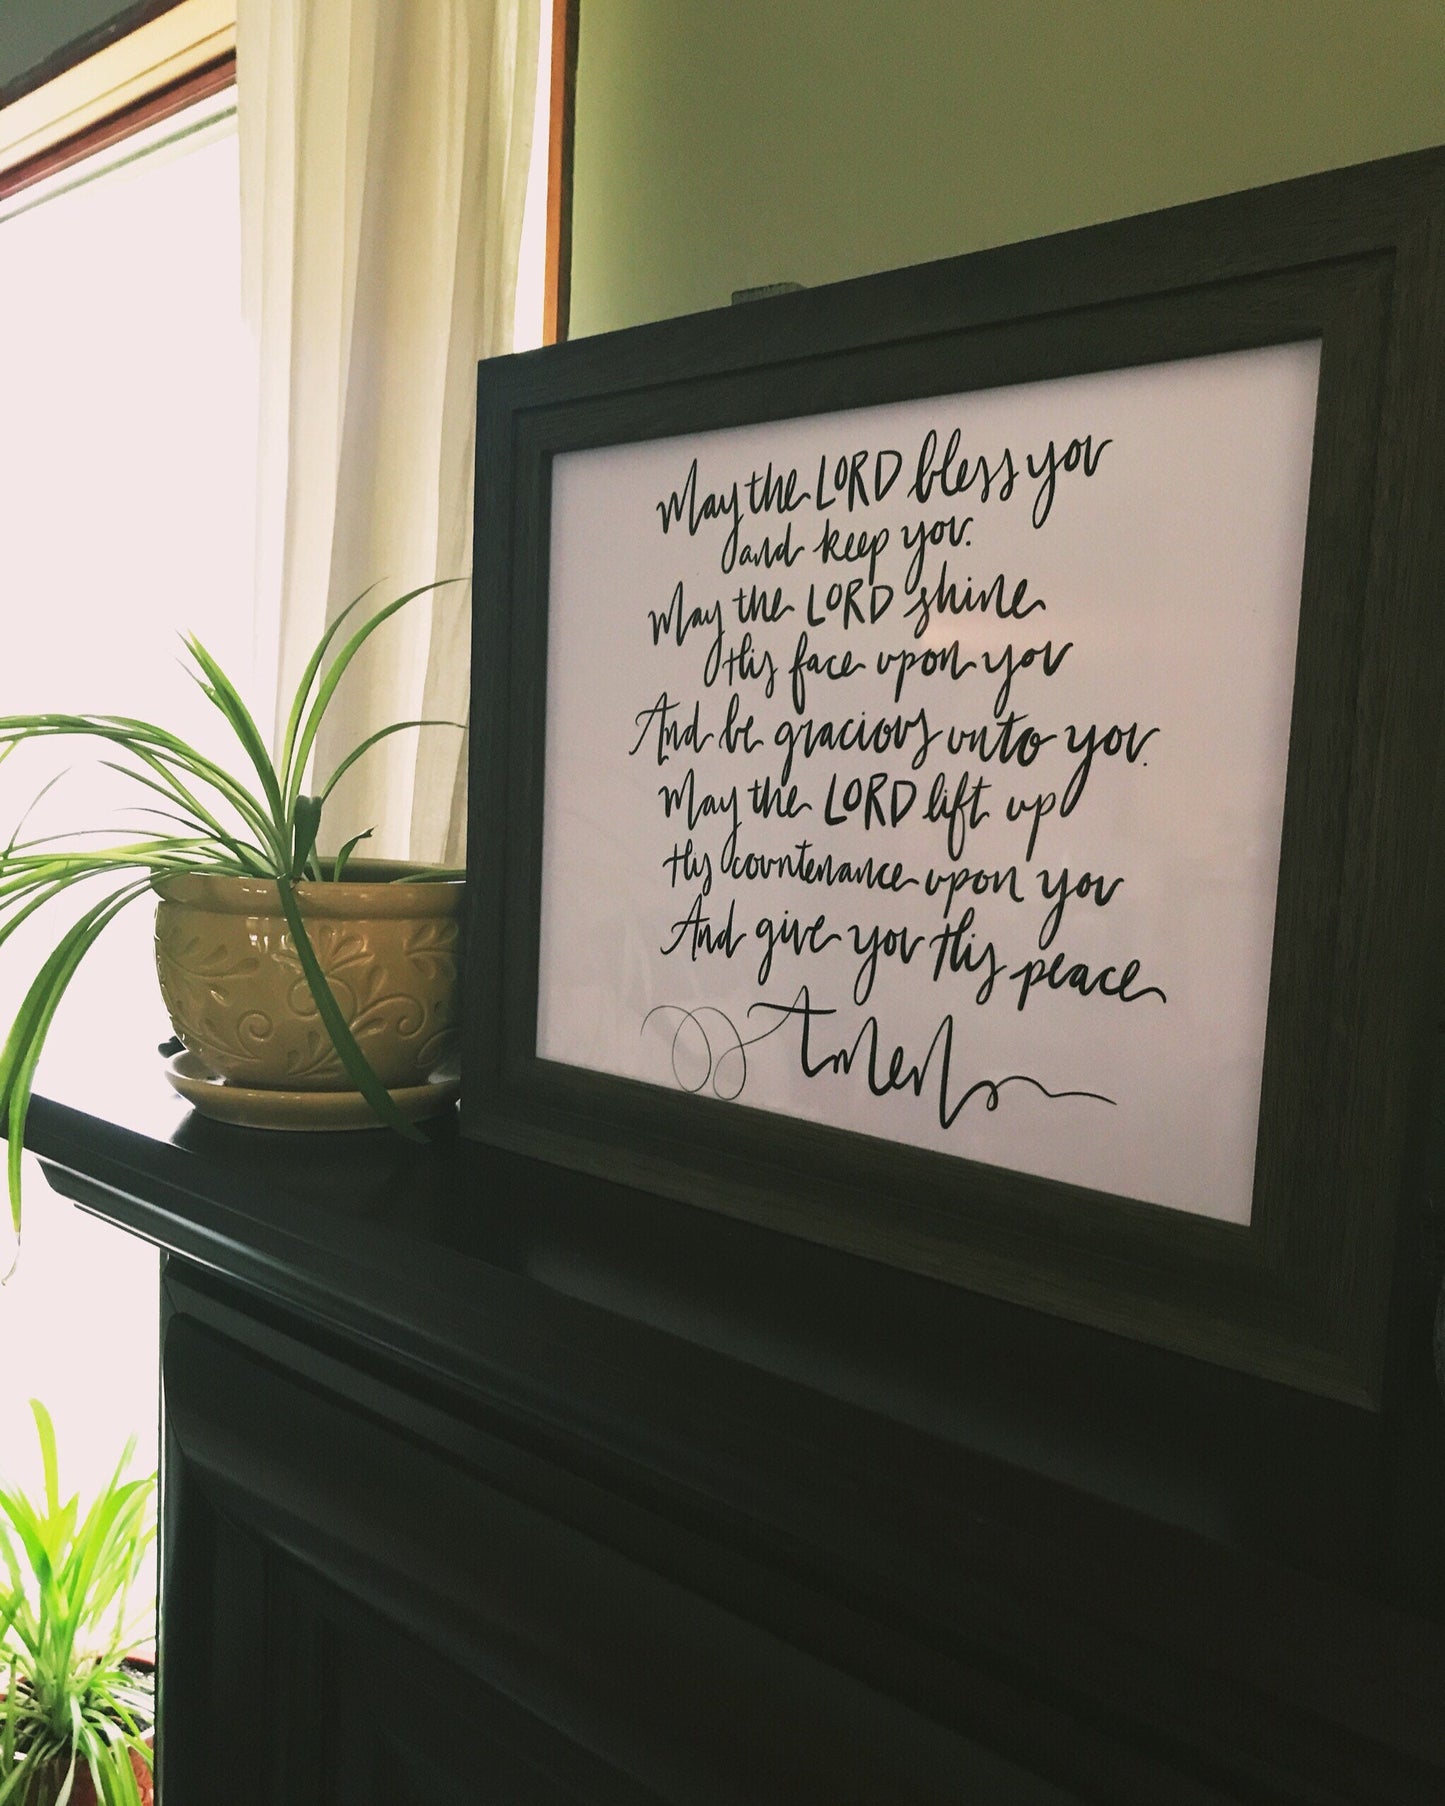 May the LORD bless you
and keep you.
May the LORD shine
His face upon you
And be gracious unto you.
May the LORD lift up
His countenance upon you
And give you His peace
Amen